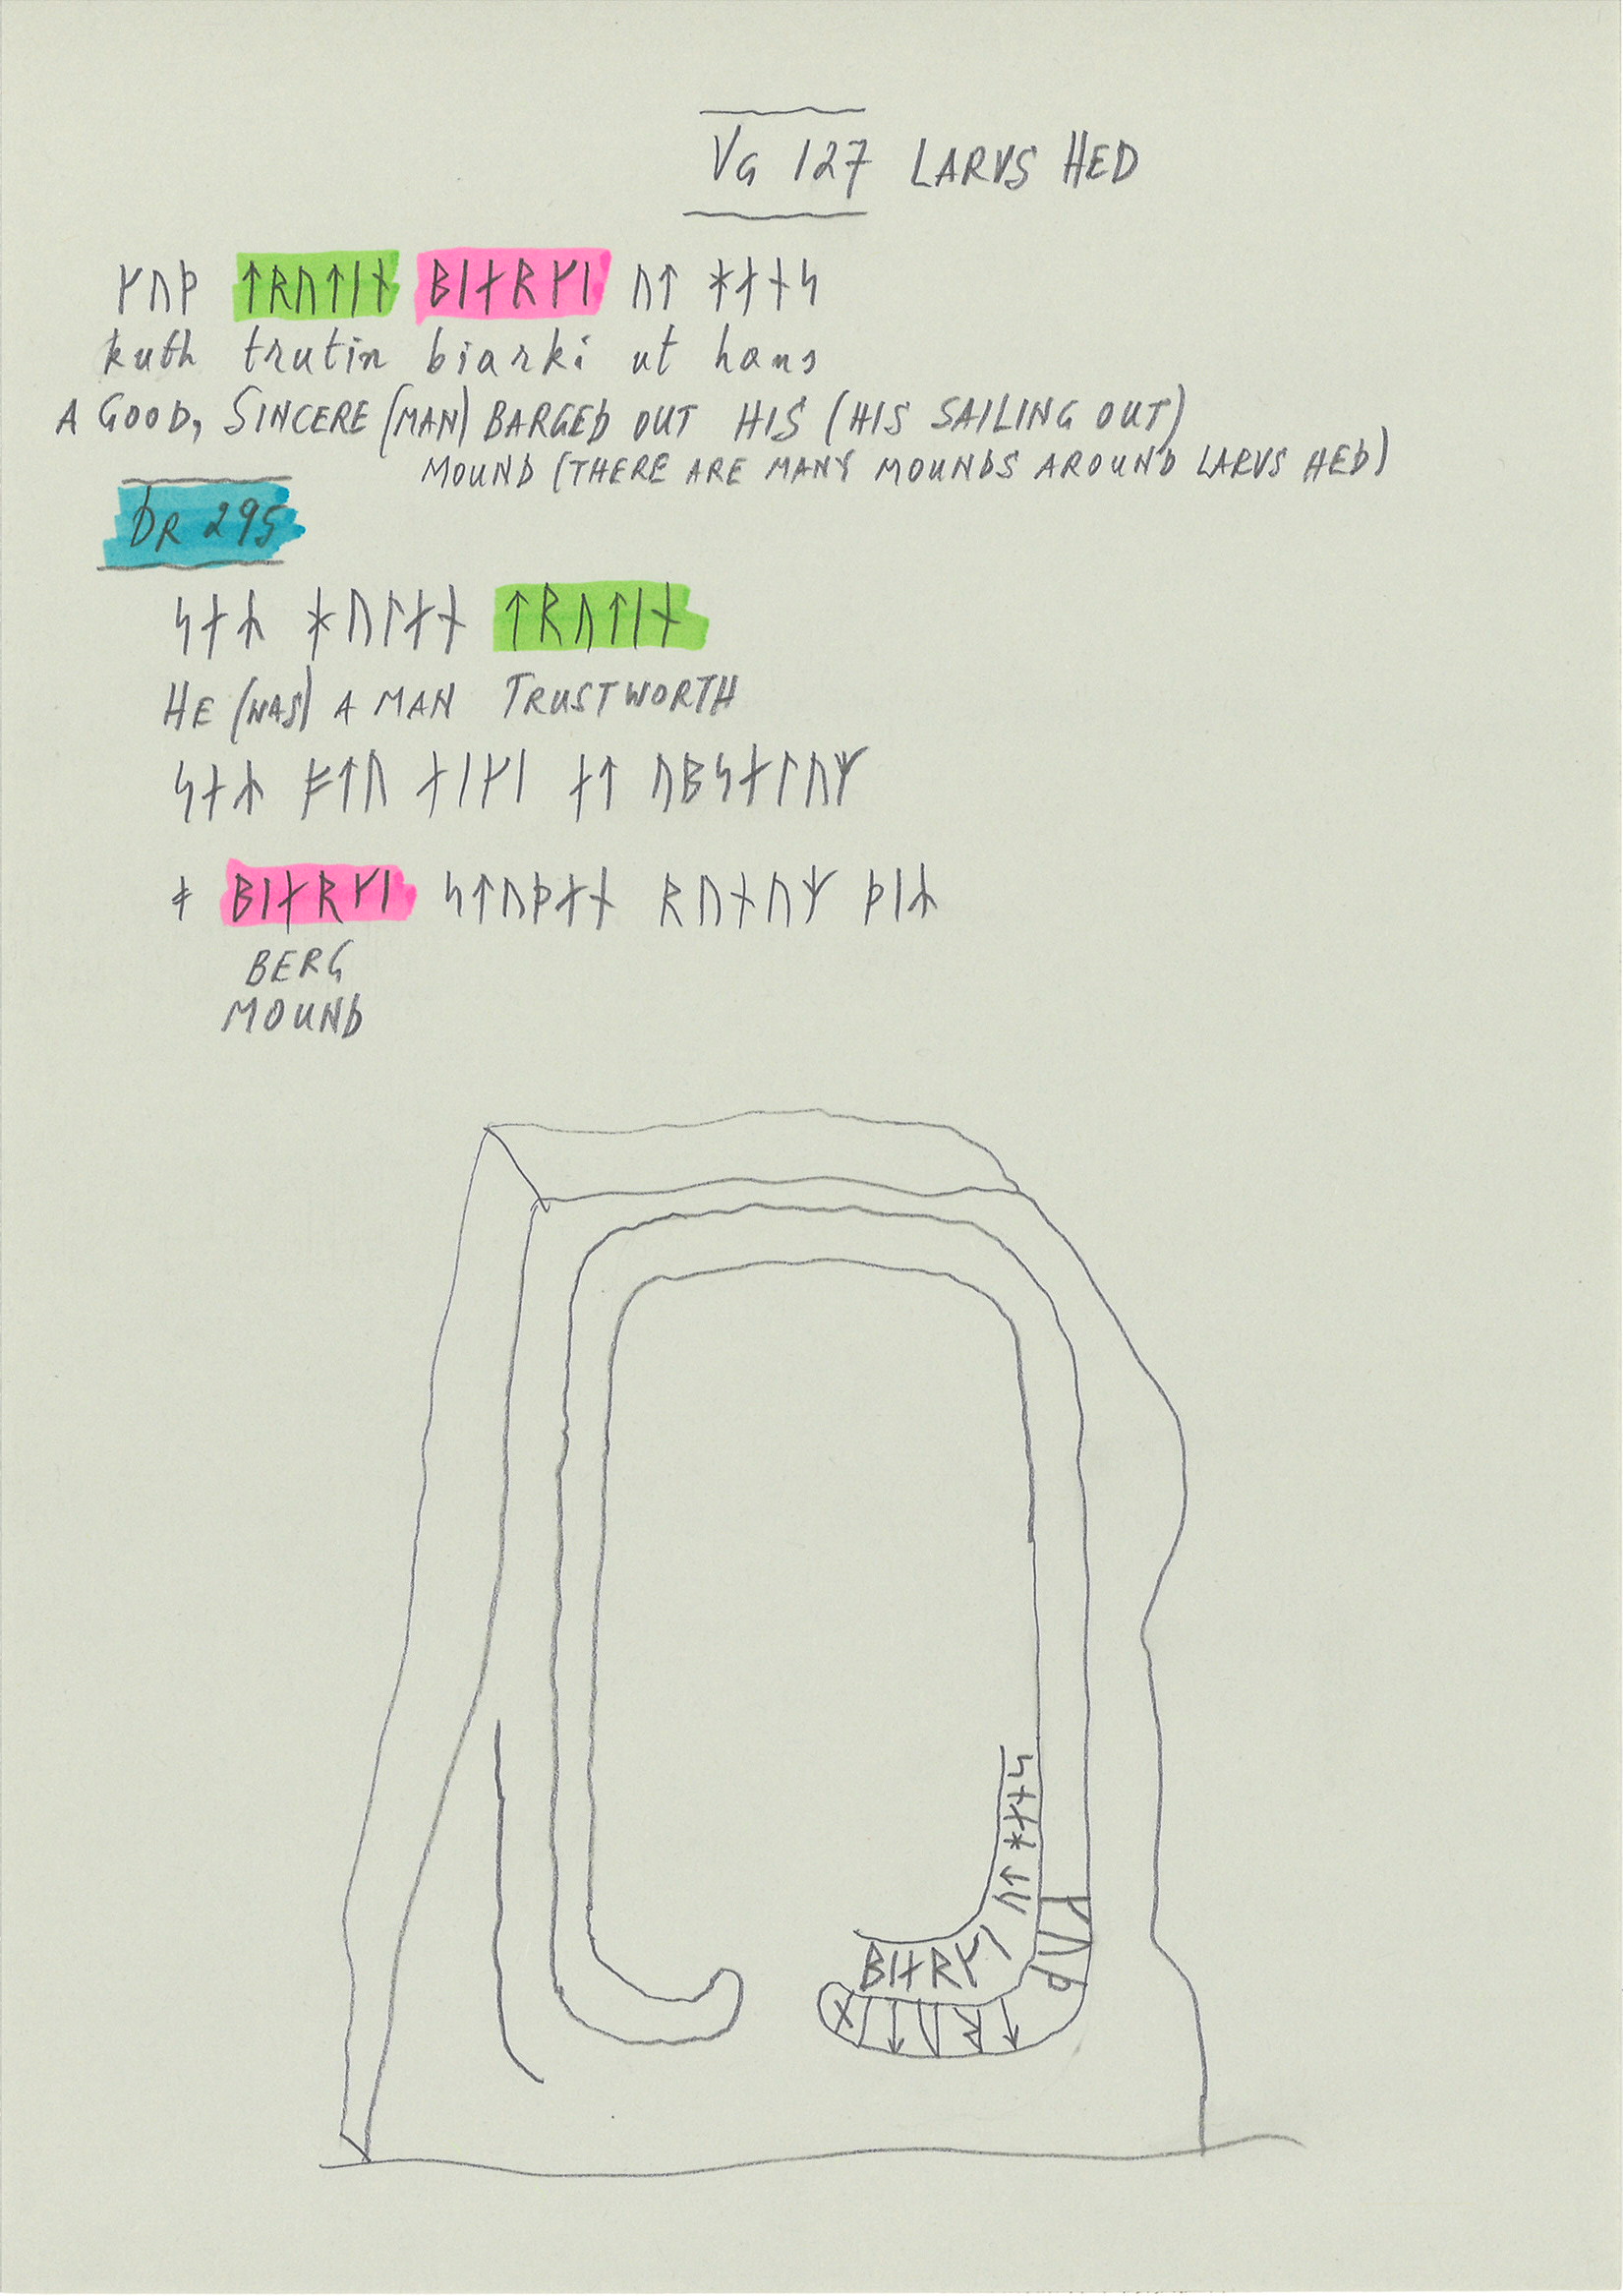 VG 127 LARVS HED
ᚴᚢᚦ ᛏᚱᚢᛏᛁᚾ ᛒᛁᛅᚱᚴᛁ ᚢᛏ ᚼᛅᚾᛋ
kuth trutin biarki ut hans
A GOOD, SINCERE (MAN) BARGED OUT HIS (HIS SAILING OUT)
MOUND (THERE ARE MANY MOUNDS AROUND LARVS HED)
DR 295
ᛋᛅᛦ ᚼᚢᛚᛅᚾ ᛏᚱᚢᛏᛁᚾ
HE (WAS) A MAN TRUSTWORTH
ᛋᛅᛦ ᚠᛏᚢ ᛅᛁᚴᛁ ᛅᛏ ᚢᛒᛋᛅᛚᚢᛘ
ᚬ ᛒᛁᛅᚱᚴᛁ ᛋᛏᚢᚦᛅᚾ ᚱᚢᚾᚢᛘ ᚦᛁᛦ
BERG
MOUND
ᚴᚢᚦ
ᛏᚱᚢᛏᛁᚾ
ᛒᛁᛅᚱᚴᛁ
ᚢᛏ ᚼᛅᚾᛋ